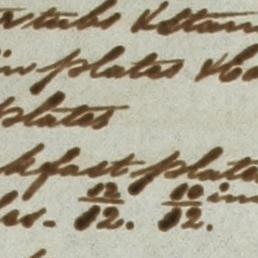 tubs & Stan
plates & Ba
plates
kfast plate
les. 12/12. 10/12. in